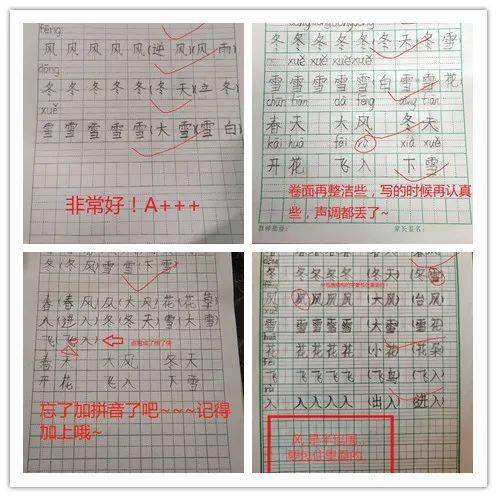 fēng
风 风 风 风 风 (逆 风)(风 雨)
dōng
冬 冬 冬 冬 冬 (冬 天)(立 冬)
xuě
雪 雪 雪 雪 雪 (大 雪)(雪 白)
非常好！A+++
冬 冬 冬 冬 冬 冬 天 冬 雪
xuě xuě xuě xuě
雪 雪 雪 雪 雪 白 雪 雪 花
chūn tiān dà fēng dōng tiān
春 天 大 风 冬 天
kāi huā fēi rù xià xuě
开 花 飞 入 下 雪
卷面再整洁些，写的时候再认真
些，声调都丢了~
教师批语： 家长签名：
冬 (冬 风) 雪 雪 (下 雪)
春 (春 风) 风 (大 风) 花 (花 草)
入 (进 入) 冬 (冬 天) 雪 (大 雪)
飞 (飞 入)
春 天 大 风 冬 天
开 花 飞 入 下 雪
忘了加拼音了吧~~~记得
加上哦~
冬 冬 冬 冬 冬 (冬 天) (冬 雪)
风 风 风 风 风 (大 风) (台 风)
雪 雪 雪 雪 雪 (大 雪) (雪 花)
花 花 花 花 花 (小 花) (花 朵)
飞 飞 飞 飞 飞 (飞 鸟) (飞 入)
入 入 入 入 入 (出 入) (进 入)